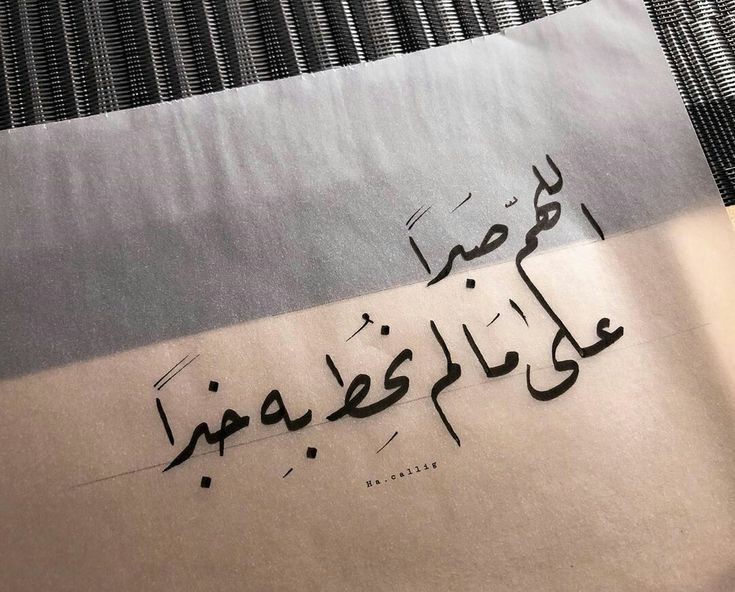 اللهمّ صبَراً
على مَا لم نُحِطُ بِهِ خبراً
Ha.callig